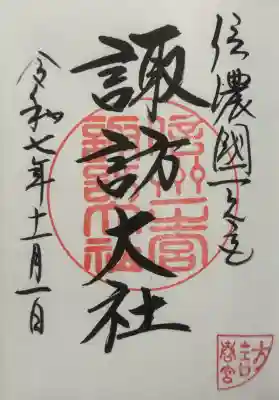 信濃國一之宮
諏訪大社
令和七年十一月一日
信州一宮
諏訪大社
春宮